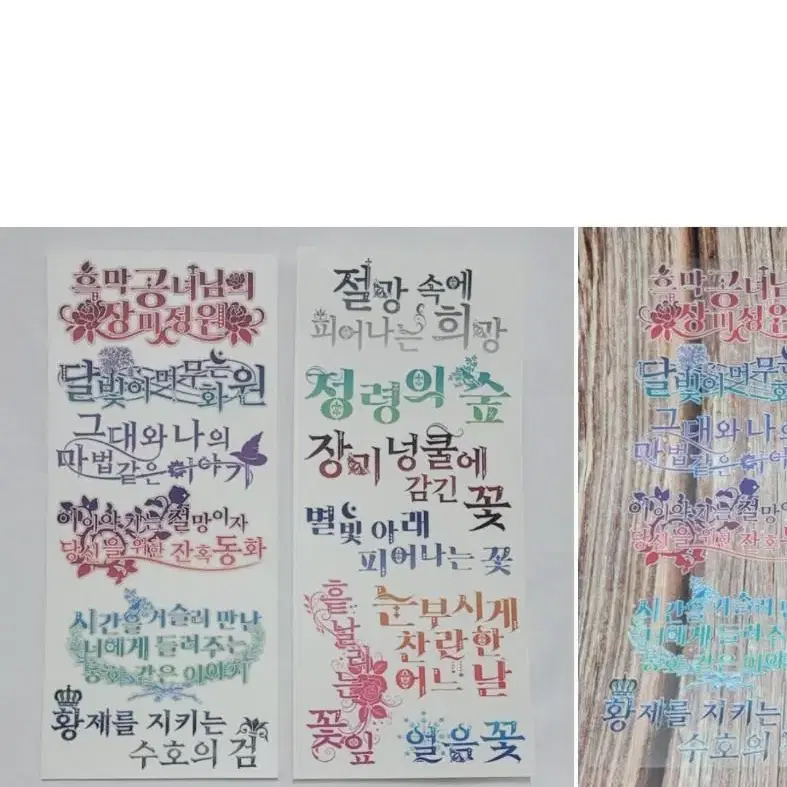 흑막 공녀님의
장미정원
달빛이 머무는
화원
그대와 나의
마법같은 이야기
이 이야기는 절망이자
당신을 위한 잔혹동화
시간을 거슬러 만난
너에게 들려주는
동화 같은 이야기
황제를 지키는
수호의 검
절망 속에
피어나는 희망
정령의 숲
장미 넝쿨에
감긴 꽃
별빛 아래
피어나는 꽃
흩날리는
꽃잎
눈부시게
찬란한
어느 날
얼음꽃
흑막 공녀님
장미정원
달빛이 머무는
그대와 나의
마법같은 이야기
이 이야기는 절망이자
당신을 위한 잔혹
시간을 거슬러 만난
너에게 들려주는
동화 같은 이야
황제를 지키는
수호의